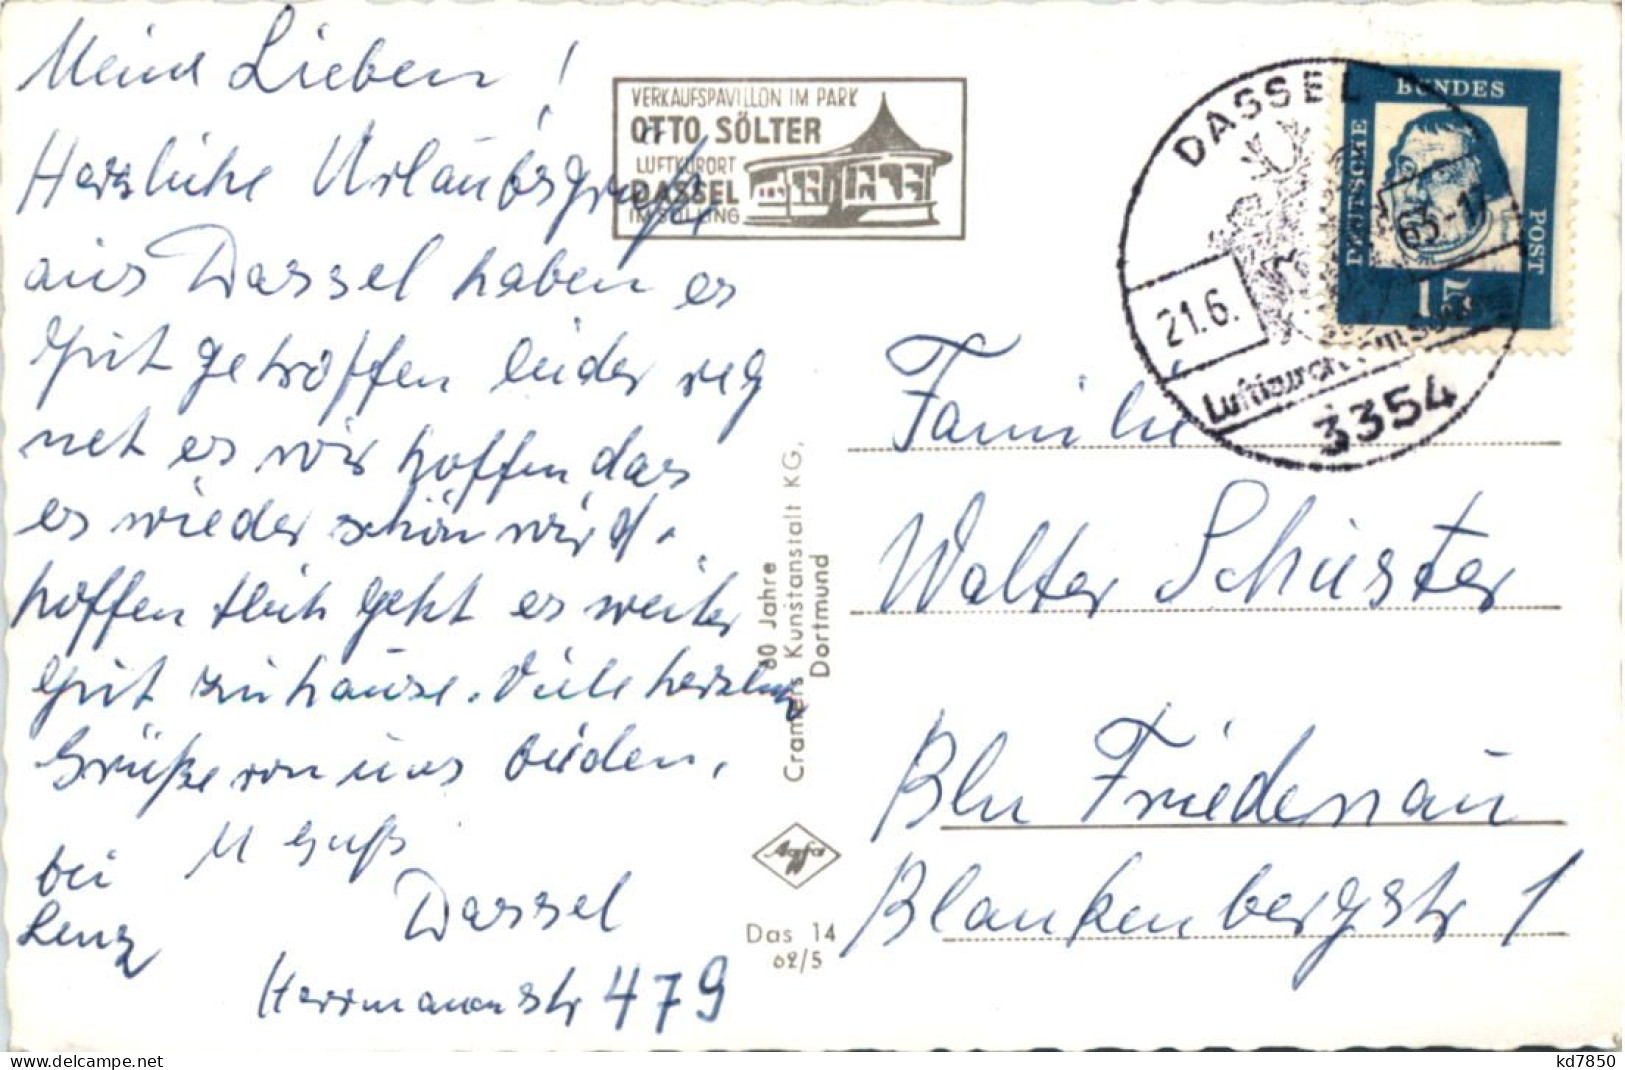 Meine Lieben!
Herzliche Urlaubsgrüße
aus Dassel haben es
gut getroffen leider reg
net es wir hoffen das
es wieder schön wird.
hoffentlich geht es weiter
gut zu hause. Viele herzliche
Grüße von uns beiden.
bei
Lenz
Dassel
Herrmannstr 479
VERKAUFSPAVILLON IM PARK
OTTO SÖLTER
LUFTKURORT
DASSEL
IM SOLLING
60 Jahre
Cramers Kunstanstalt KG,
Dortmund
Agfa
Das 14
62/5
DASSEL
21.6.
63-17
Luftkurort im Solling
3354
DEUTSCHE
BUNDES
POST
15
Familie
Walter Schuster
Bln Friedenau
Blankenbergstr 1
www.delcampe.net
kd7850